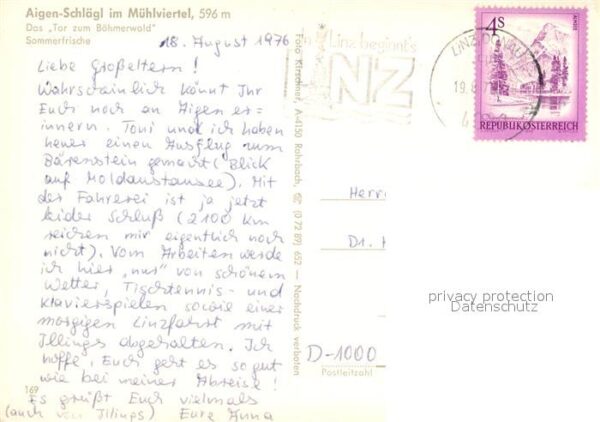 Aigen-Schlägl im Mühlviertel, 596 m
Das „Tor zum Böhmerwald"
Sommerfrische
18. August 1976
Liebe Großeltern!
Wahrscheinlich könnt Ihr
Euch noch an Aigen er=
innern. Toni und ich haben
heuer einen Ausflug zum
Bärenstein gemacht (Blick
auf Moldaustausee). Mit
der Fahrerei ist ja jetzt
leider Schluß (2100 km
reichen mir eigentlich noch
nicht). Vom Arbeiten werde
ich hier „nur" von schönem
Wetter, Tischtennis- und
Klavierspielen sowie einer
morgigen Linzfahrt mit
Illinges abgehalten. Ich
hoffe, Euch geht es so gut
wie bei meiner Abreise!
Es grüßt Euch vielmals
(auch von Illings) Eure Anna
169
Foto Kirschner, A-4150 Rohrbach, ☏ (0 72 89) 652 — Nachdruck verboten
Linz beginnt's
LINZ
LINZ DONAU
19.8.
4S
REPUBLIK ÖSTERREICH
Herrn
D1.
D-1000
Postleitzahl
privacy protection
Datenschutz